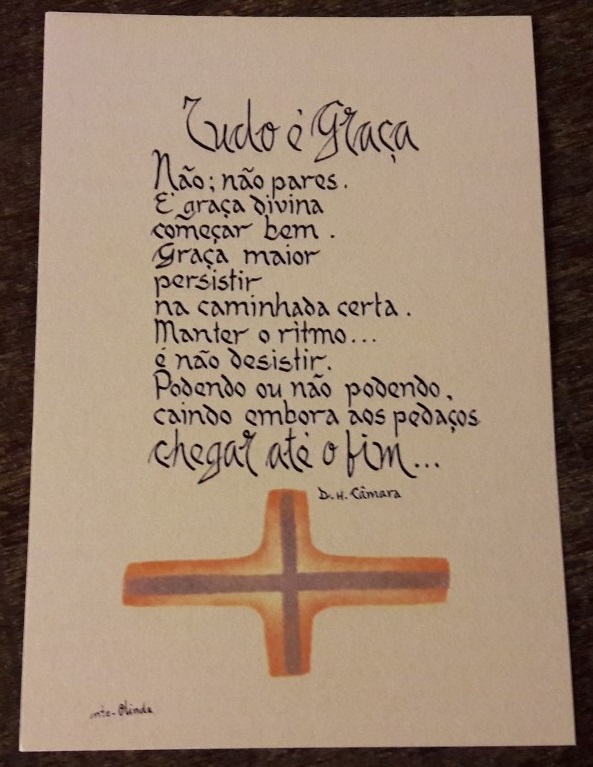 Tudo é Graça
Não; não pares.
É graça divina
começar bem.
Graça maior
persistir
na caminhada certa.
Manter o ritmo...
é não desistir.
Podendo ou não podendo,
caindo embora aos pedaços
chegar até o fim...
D. H. Câmara
Olinda